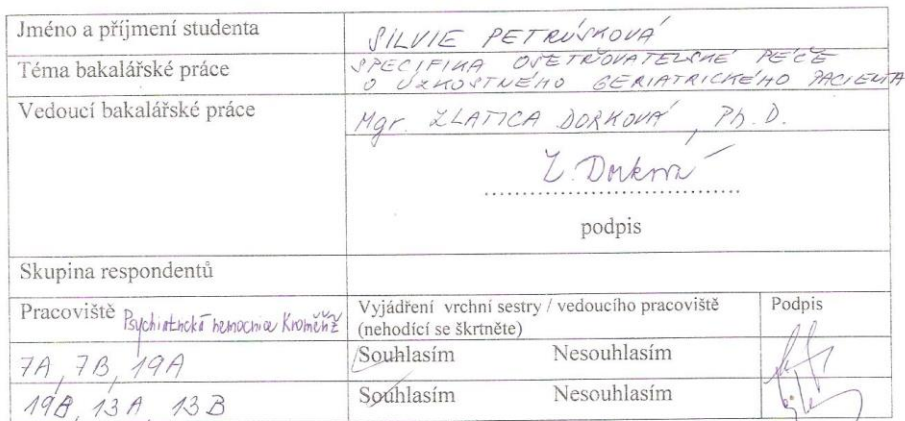 Jméno a příjmení studenta
SILVIE PETRŮSKOVÁ
Téma bakalářské práce
SPECIFIKA OŠETŘOVATELSKÉ PÉČE
O ÚZKOSTNÉHO GERIATRICKÉHO PACIENTA
Vedoucí bakalářské práce
Mgr. ZLATICA DORKOVÁ, Ph.D.
Z. Dorková
podpis
Skupina respondentů
Pracoviště Psychiatrická nemocnice Kroměříž
Vyjádření vrchní sestry / vedoucího pracoviště
(nehodící se škrtněte)
Podpis
7A, 7B, 19A
Souhlasím Nesouhlasím
19B, 13A, 13B
Souhlasím Nesouhlasím